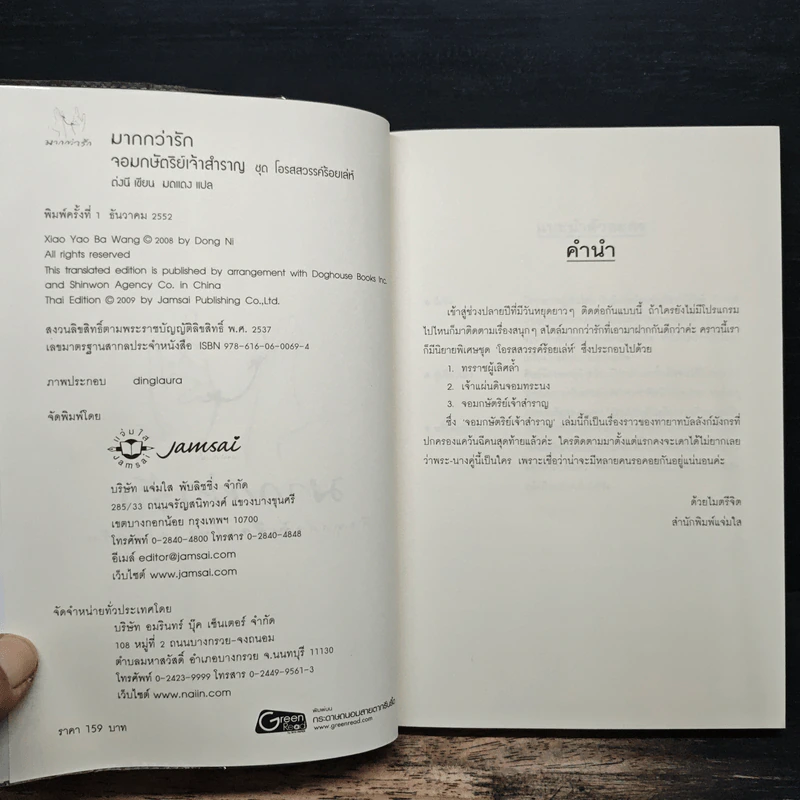 มากกว่ารัก
มากกว่ารัก
จอมกษัตริย์เจ้าสำราญ ชุด โอรสสวรรค์ร้อยเล่ห์
ต่งนี เขียน มดแดง แปล
พิมพ์ครั้งที่ 1 ธันวาคม 2552
Xiao Yao Ba Wang © 2008 by Dong Ni
All rights reserved
This translated edition is published by arrangement with Doghouse Books Inc.
and Shinwon Agency Co. in China
Thai Edition © 2009 by Jamsai Publishing Co.,Ltd.
สงวนลิขสิทธิ์ตามพระราชบัญญัติลิขสิทธิ์ พ.ศ. 2537
เลขมาตรฐานสากลประจำหนังสือ ISBN 978-616-06-0069-4
ภาพประกอบ dinglaura
จัดพิมพ์โดย
แจ่มใส
Jamsai
Jamsai
บริษัท แจ่มใส พับลิชชิ่ง จำกัด
285/33 ถนนจรัญสนิทวงศ์ แขวงบางขุนศรี
เขตบางกอกน้อย กรุงเทพฯ 10700
โทรศัพท์ 0-2840-4800 โทรสาร 0-2840-4848
อีเมล์ editor@jamsai.com
เว็บไซต์ www.jamsai.com
จัดจำหน่ายทั่วประเทศโดย
บริษัท อมรินทร์ บุ๊ค เซ็นเตอร์ จำกัด
108 หมู่ที่ 2 ถนนบางกรวย-จงถนอม
ตำบลมหาสวัสดิ์ อำเภอบางกรวย จ.นนทบุรี 11130
โทรศัพท์ 0-2423-9999 โทรสาร 0-2449-9561-3
เว็บไซต์ www.naiin.com
ราคา 159 บาท
Green
Read
พิมพ์บน
กระดาษถนอมสายตากรีนรี้ด
www.greenread.com
คำนำ
เข้าสู่ช่วงปลายปีที่มีวันหยุดยาวๆ ติดต่อกันแบบนี้ ถ้าใครยังไม่มีโปรแกรม
ไปไหนก็มาติดตามเรื่องสนุกๆ สไตล์มากกว่ารักที่เอามาฝากกันดีกว่าค่ะ คราวนี้เรา
ก็มีนิยายพิเศษชุด 'โอรสสวรรค์ร้อยเล่ห์' ซึ่งประกอบไปด้วย
1. ทรราชผู้เลิศล้ำ
2. เจ้าแผ่นดินจอมทระนง
3. จอมกษัตริย์เจ้าสำราญ
ซึ่ง 'จอมกษัตริย์เจ้าสำราญ' เล่มนี้ก็เป็นเรื่องราวของทายาทบัลลังก์มังกรที่
ปกครองแคว้นฉีคนสุดท้ายแล้วค่ะ ใครติดตามมาตั้งแต่แรกคงจะเดาได้ไม่ยากเลย
ว่าพระ-นางคู่นี้เป็นใคร เพราะเชื่อว่าน่าจะมีหลายคนรอคอยกันอยู่แน่นอนค่ะ
ด้วยไมตรีจิต
สำนักพิมพ์แจ่มใส